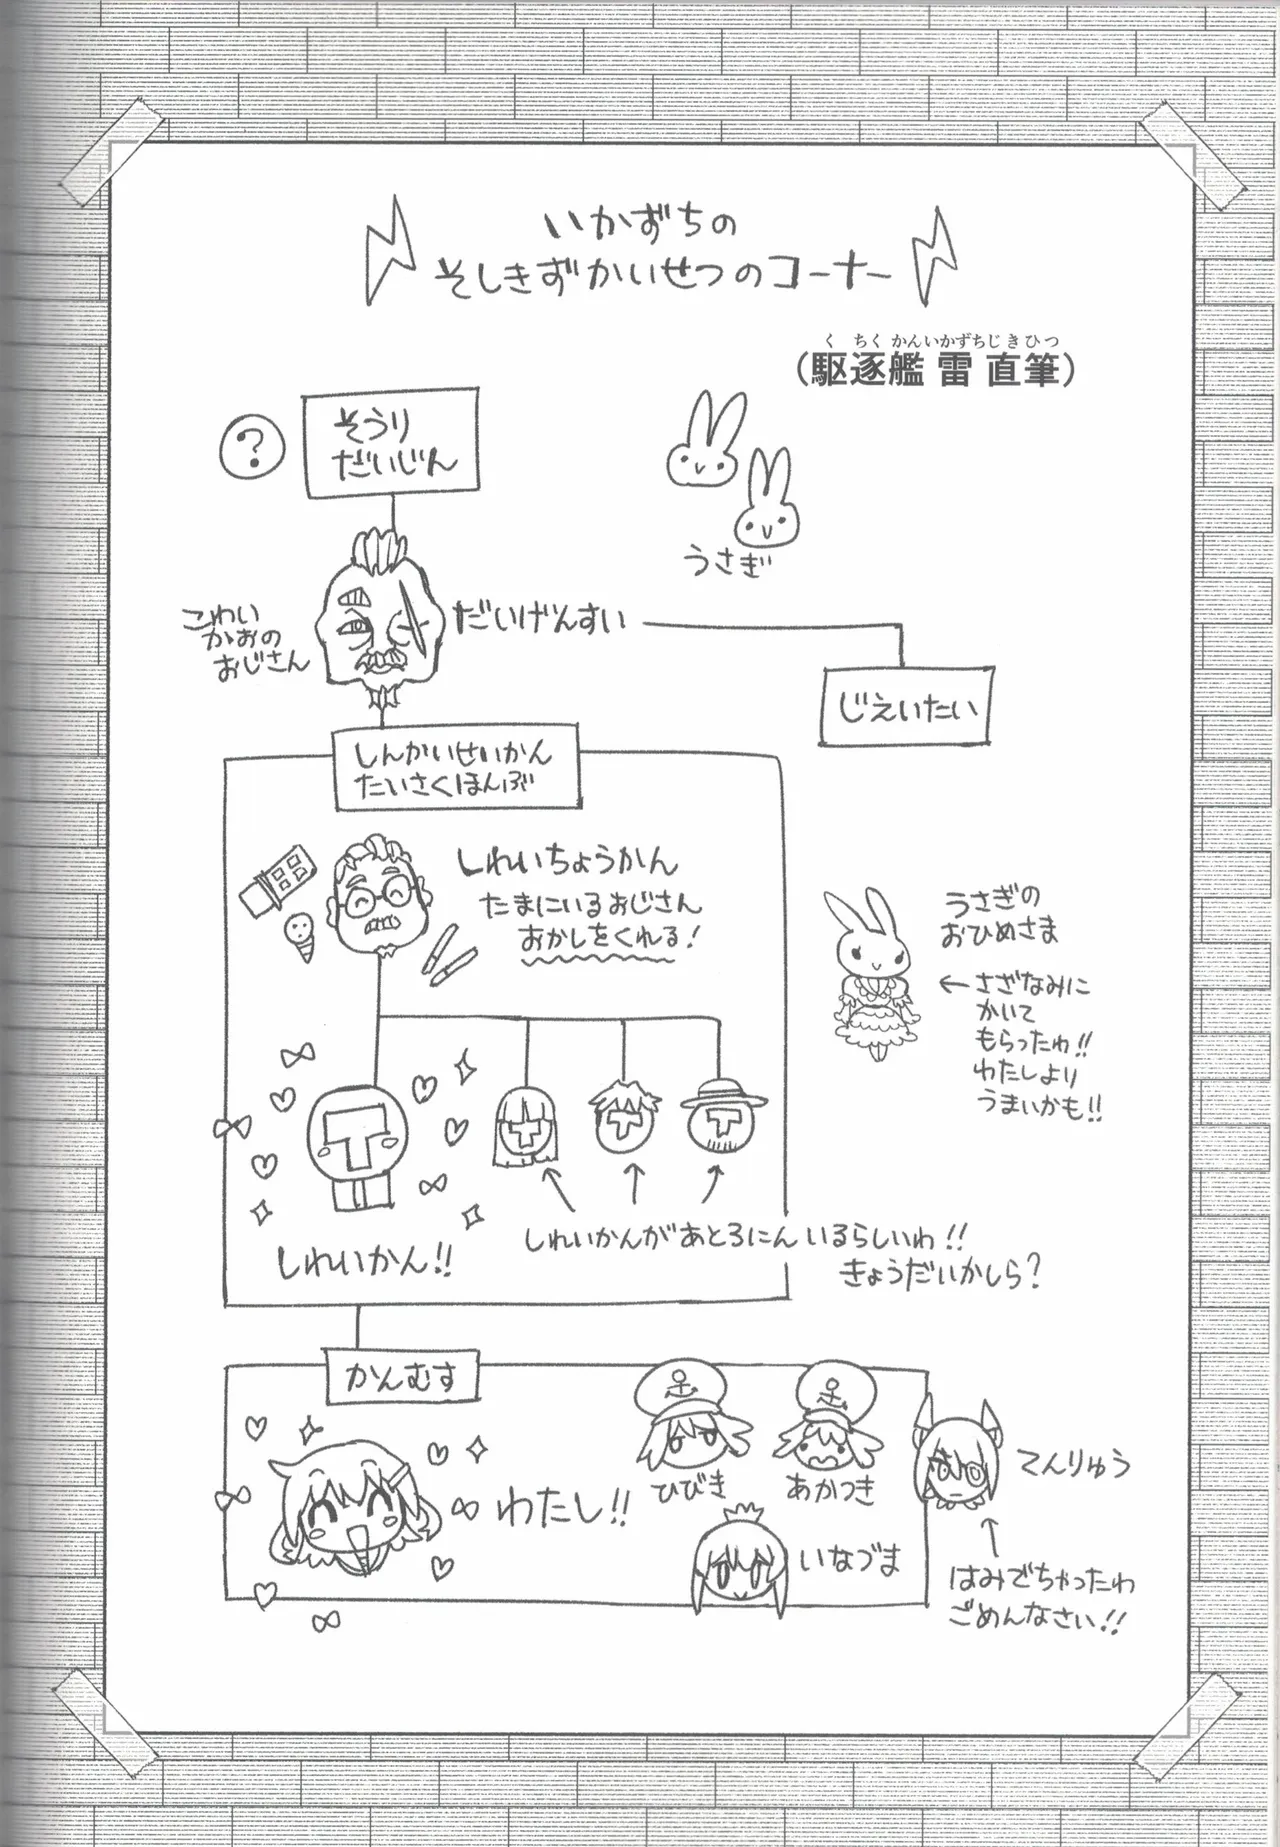 いかずちの
そしきずかいせつのコーナー
くちくかんいかずちじきひつ
(駆逐艦 雷 直筆)
?
そうり
だいじん
うさぎ
こわい
かおの
おじさん
だいげんすい
じえいたい
しんかいせいかん
たいさくほんぶ
しれいちょうかん
たまにいるおじさん
おかしをくれる!
うさぎの
おひめさま
←さざなみに
かいて
もらったわ!!
わたしより
うまいかも!!
しれいかん!!
しれいかんがあと3にんいるらしいわ!!
きょうだいかしら?
かんむす
わたし!!
ひびき
あかつき
いなづま
てんりゅう
はみでちゃったわ
ごめんなさい!!